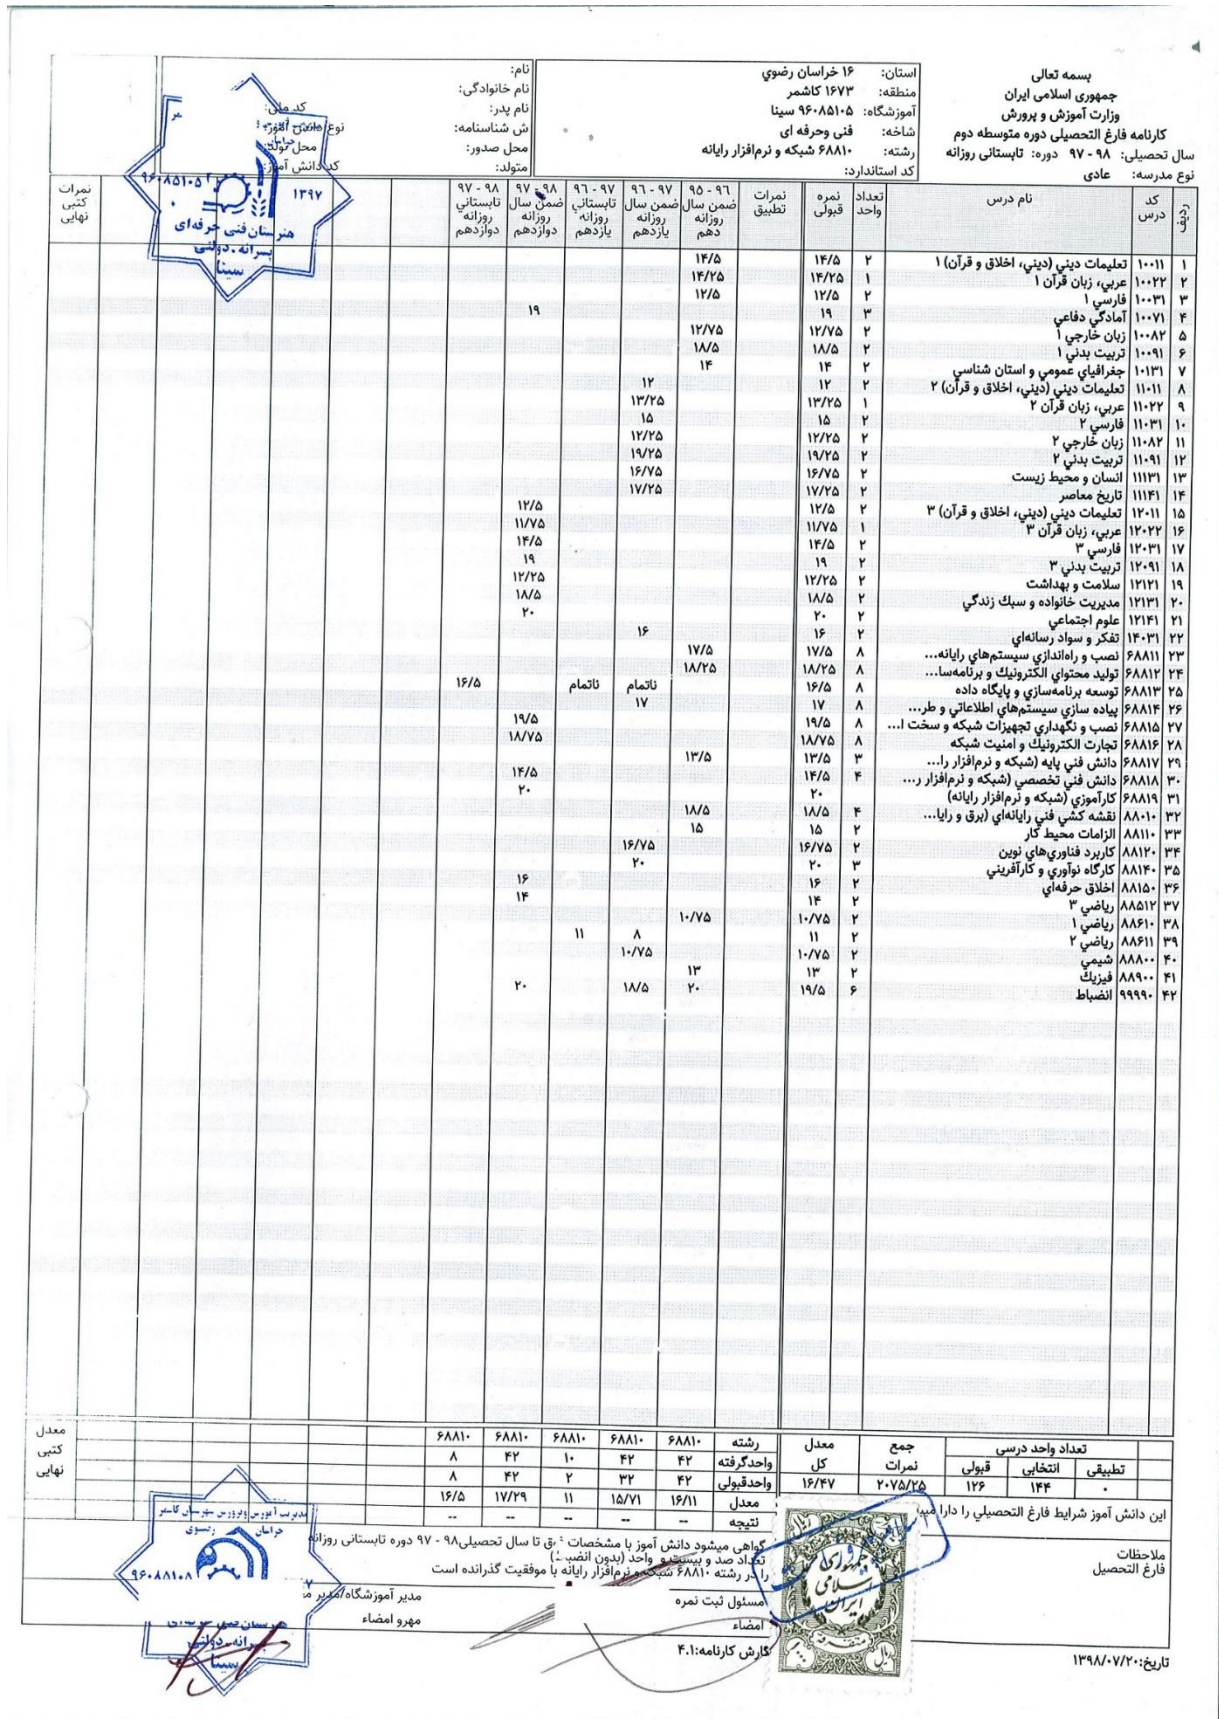 بسمه تعالی
جمهوری اسلامی ایران
وزارت آموزش و پرورش
کارنامه فارغ التحصیلی دوره متوسطه دوم
سال تحصیلی: ۹۸ - ۹۷ دوره: تابستانی روزانه
نوع مدرسه: عادی
استان: ۱۶ خراسان رضوي
منطقه: ۱۶۷۳ کاشمر
آموزشگاه: ۹۶۰۸۵۱۰۵ سینا
شاخه: فنی وحرفه ای
رشته: ۶۸۸۱۰ شبکه و نرم‌افزار رایانه
کد استاندارد:
نام:
نام خانوادگی:
نام پدر:
ش شناسنامه:
محل صدور:
متولد:
کد ملی:
نوع دانش آموز:
محل تولد:
کد دانش آموز:
۹۶۰۸۵۱۰۵
۱۳۹۷
هنرستان فنی حرفه‌ای
پسرانه - دولتی
سینا
ردیف | کد درس | نام درس | تعداد واحد | نمره قبولی | نمرات تطبیق | ۹۶ - ۹۵ ضمن سال روزانه دهم | ۹۷ - ۹۶ ضمن سال روزانه یازدهم | ۹۷ - ۹۶ تابستاني روزانه یازدهم | ۹۸ - ۹۷ ضمن سال روزانه دوازدهم | ۹۸ - ۹۷ تابستاني روزانه دوازدهم | نمرات کتبی نهایی
۱ ۱۰۰۱۱ تعلیمات دیني (دیني، اخلاق و قرآن) ۱ ۲ ۱۴/۵ ۱۴/۵
۲ ۱۰۰۲۲ عربي، زبان قرآن ۱ ۱ ۱۴/۲۵ ۱۴/۲۵
۳ ۱۰۰۳۱ فارسي ۱ ۲ ۱۲/۵ ۱۲/۵
۴ ۱۰۰۷۱ آمادگي دفاعي ۳ ۱۹ ۱۹
۵ ۱۰۰۸۲ زبان خارجي ۱ ۲ ۱۲/۷۵ ۱۲/۷۵
۶ ۱۰۰۹۱ تربیت بدني ۱ ۲ ۱۸/۵ ۱۸/۵
۷ ۱۰۱۳۱ جغرافیاي عمومي و استان شناسي ۲ ۱۴ ۱۴
۸ ۱۱۰۱۱ تعلیمات دیني (دیني، اخلاق و قرآن) ۲ ۲ ۱۲ ۱۲
۹ ۱۱۰۲۲ عربي، زبان قرآن ۲ ۱ ۱۳/۲۵ ۱۳/۲۵
۱۰ ۱۱۰۳۱ فارسي ۲ ۲ ۱۵ ۱۵
۱۱ ۱۱۰۸۲ زبان خارجي ۲ ۲ ۱۲/۲۵ ۱۲/۲۵
۱۲ ۱۱۰۹۱ تربیت بدني ۲ ۲ ۱۹/۲۵ ۱۹/۲۵
۱۳ ۱۱۱۳۱ انسان و محیط زیست ۲ ۱۶/۷۵ ۱۶/۷۵
۱۴ ۱۱۱۴۱ تاریخ معاصر ۲ ۱۷/۲۵ ۱۷/۲۵
۱۵ ۱۲۰۱۱ تعلیمات دیني (دیني، اخلاق و قرآن) ۳ ۲ ۱۲/۵ ۱۲/۵
۱۶ ۱۲۰۲۲ عربي، زبان قرآن ۳ ۱ ۱۱/۷۵ ۱۱/۷۵
۱۷ ۱۲۰۳۱ فارسي ۳ ۲ ۱۴/۵ ۱۴/۵
۱۸ ۱۲۰۹۱ تربیت بدني ۳ ۲ ۱۹ ۱۹
۱۹ ۱۲۱۲۱ سلامت و بهداشت ۲ ۱۲/۲۵ ۱۲/۲۵
۲۰ ۱۲۱۳۱ مدیریت خانواده و سبك زندگي ۲ ۱۸/۵ ۱۸/۵
۲۱ ۱۲۱۴۱ علوم اجتماعي ۲ ۲۰ ۲۰
۲۲ ۱۴۰۳۱ تفکر و سواد رسانه‌اي ۲ ۱۶ ۱۶
۲۳ ۶۸۸۱۱ نصب و راه‌اندازي سیستم‌هاي رایانه... ۸ ۱۷/۵ ۱۷/۵
۲۴ ۶۸۸۱۲ تولید محتواي الکترونیك و برنامه‌سا... ۸ ۱۸/۲۵ ۱۸/۲۵
۲۵ ۶۸۸۱۳ توسعه برنامه‌سازي و پایگاه داده ۸ ۱۶/۵ ناتمام ناتمام ۱۶/۵
۲۶ ۶۸۸۱۴ پیاده سازي سیستم‌هاي اطلاعاتي و طر... ۸ ۱۷ ۱۷
۲۷ ۶۸۸۱۵ نصب و نگهداري تجهیزات شبکه و سخت ا... ۸ ۱۹/۵ ۱۹/۵
۲۸ ۶۸۸۱۶ تجارت الکترونیك و امنیت شبکه ۸ ۱۸/۷۵ ۱۸/۷۵
۲۹ ۶۸۸۱۷ دانش فني پایه (شبکه و نرم‌افزار را... ۳ ۱۳/۵ ۱۳/۵
۳۰ ۶۸۸۱۸ دانش فني تخصصي (شبکه و نرم‌افزار ر... ۴ ۱۴/۵ ۱۴/۵
۳۱ ۶۸۸۱۹ کارآموزي (شبکه و نرم‌افزار رایانه) ۲۰ ۲۰
۳۲ ۸۸۰۱۰ نقشه کشي فني رایانه‌اي (برق و رایا... ۴ ۱۸/۵ ۱۸/۵
۳۳ ۸۸۱۱۰ الزامات محیط کار ۲ ۱۵ ۱۵
۳۴ ۸۸۱۲۰ کاربرد فناوري‌هاي نوین ۲ ۱۶/۷۵ ۱۶/۷۵
۳۵ ۸۸۱۴۰ کارگاه نوآوري و کارآفریني ۳ ۲۰ ۲۰
۳۶ ۸۸۱۵۰ اخلاق حرفه‌اي ۲ ۱۶ ۱۶
۳۷ ۸۸۵۱۲ ریاضي ۳ ۲ ۱۴ ۱۴
۳۸ ۸۸۶۱۰ ریاضي ۱ ۲ ۱۰/۷۵ ۱۰/۷۵
۳۹ ۸۸۶۱۱ ریاضي ۲ ۲ ۱۱ ۸ ۱۱
۴۰ ۸۸۸۰۰ شیمي ۲ ۱۰/۷۵ ۱۰/۷۵
۴۱ ۸۸۹۰۰ فیزیك ۲ ۱۳ ۱۳
۴۲ ۹۹۹۹۰ انضباط ۶ ۱۹/۵ ۲۰ ۱۸/۵ ۲۰
تعداد واحد درسی
تطبیقی | انتخابی | قبولی | جمع نمرات | معدل کل
۰ ۱۴۴ ۱۲۶ ۲۰۷۵/۲۵ ۱۶/۴۷
رشته ۶۸۸۱۰ ۶۸۸۱۰ ۶۸۸۱۰ ۶۸۸۱۰ ۶۸۸۱۰
واحدگرفته ۴۲ ۴۲ ۱۰ ۴۲ ۸
واحدقبولی ۴۲ ۳۲ ۲ ۴۲ ۸
معدل ۱۶/۱۱ ۱۵/۷۱ ۱۱ ۱۷/۲۹ ۱۶/۵
نتیجه -- -- -- -- --
معدل کتبی نهایی
این دانش آموز شرایط فارغ التحصیلي را دارا
ملاحظات
فارغ التحصیل
گواهی میشود دانش آموز با مشخصات فوق تا سال تحصیلی ۹۸ - ۹۷ دوره تابستانی روزانه
تعداد صد و بیست و واحد (بدون انضباط)
را در رشته ۶۸۸۱۰ شبکه و نرم‌افزار رایانه با موفقیت گذرانده است
مسئول ثبت نمره
امضاء
مدیر آموزشگاه/مدیر
مهرو امضاء
جمهوری اسلامی ایران
متفرقه
ریال
مدیریت آموزش و پرورش شهرستان کاشمر
خراسان رضوی
۹۶۰۸۵۱۰۸
پسرانه - دولتی
سینا
گزارش کارنامه:۴.۱
تاریخ:۱۳۹۸/۰۷/۲۰